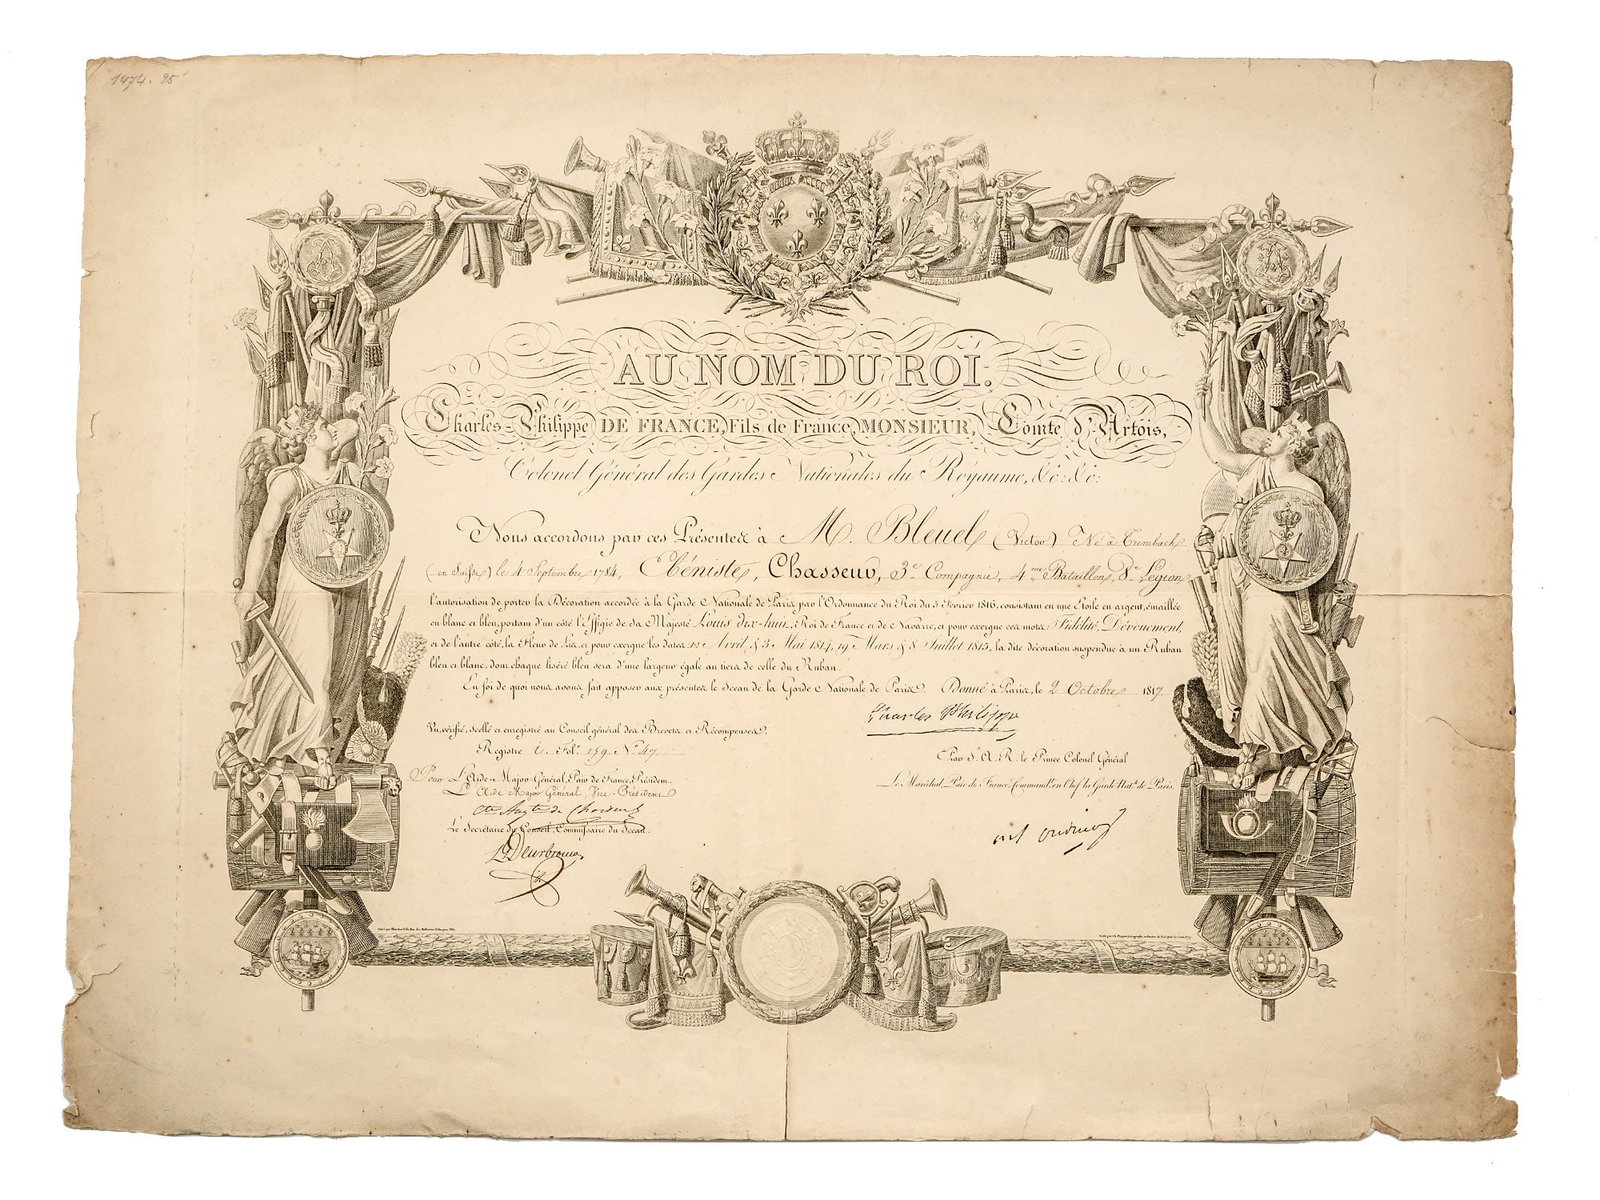 1474. 25
AU NOM DU ROI.
Charles-Philippe DE FRANCE, Fils de France, MONSIEUR, Comte d'Artois,
Colonel Général des Gardes Nationales du Royaume, &c. &c.
Nous accordons par ces Présentes à M. Bleuel (Victor) Né à Trimbach
(en Suisse) le 4 Septembre 1784, Ebéniste, Chasseur, 3e Compagnie, 4me Bataillon, 8e Légion
l'autorisation de porter la Décoration accordée à la Garde Nationale de Paris par l'Ordonnance du Roi du 5 Février 1816, consistant en une Etoile en argent, émaillée
en blanc et bleu, portant d'un côté l'Effigie de Sa Majesté Louis dix-huit, Roi de France et de Navarre, et pour exergue ces mots: Fidélité, Dévouement,
et de l'autre côté, la Fleur de Lis, et pour exergue les dates 12 Avril, & 3 Mai 1814, 19 Mars & 8 Juillet 1815, la dite décoration suspendue à un Ruban
bleu et blanc, dont chaque liseré bleu sera d'une largeur égale au tiers de celle du Ruban.
En foi de quoi nous avons fait apposer aux présentes le Sceau de la Garde Nationale de Paris. Donné à Paris, le 2 Octobre 1817
Charles Philippe
Vu, vérifié, scellé et enregistré au Conseil général des Brevets et Récompenses.
Registre U. Fol. 159 N° 47
Par S. A. R. le Prince Colonel Général
Pour L'Aide-Major-Général, Pair de France, Président
Le Maréchal, Pair de France, Command.t en Chef la Garde Nat.le de Paris.
L'Aide Major Général Vice-Président
Le Secrétaire du Conseil, Commissaire du Sceau.